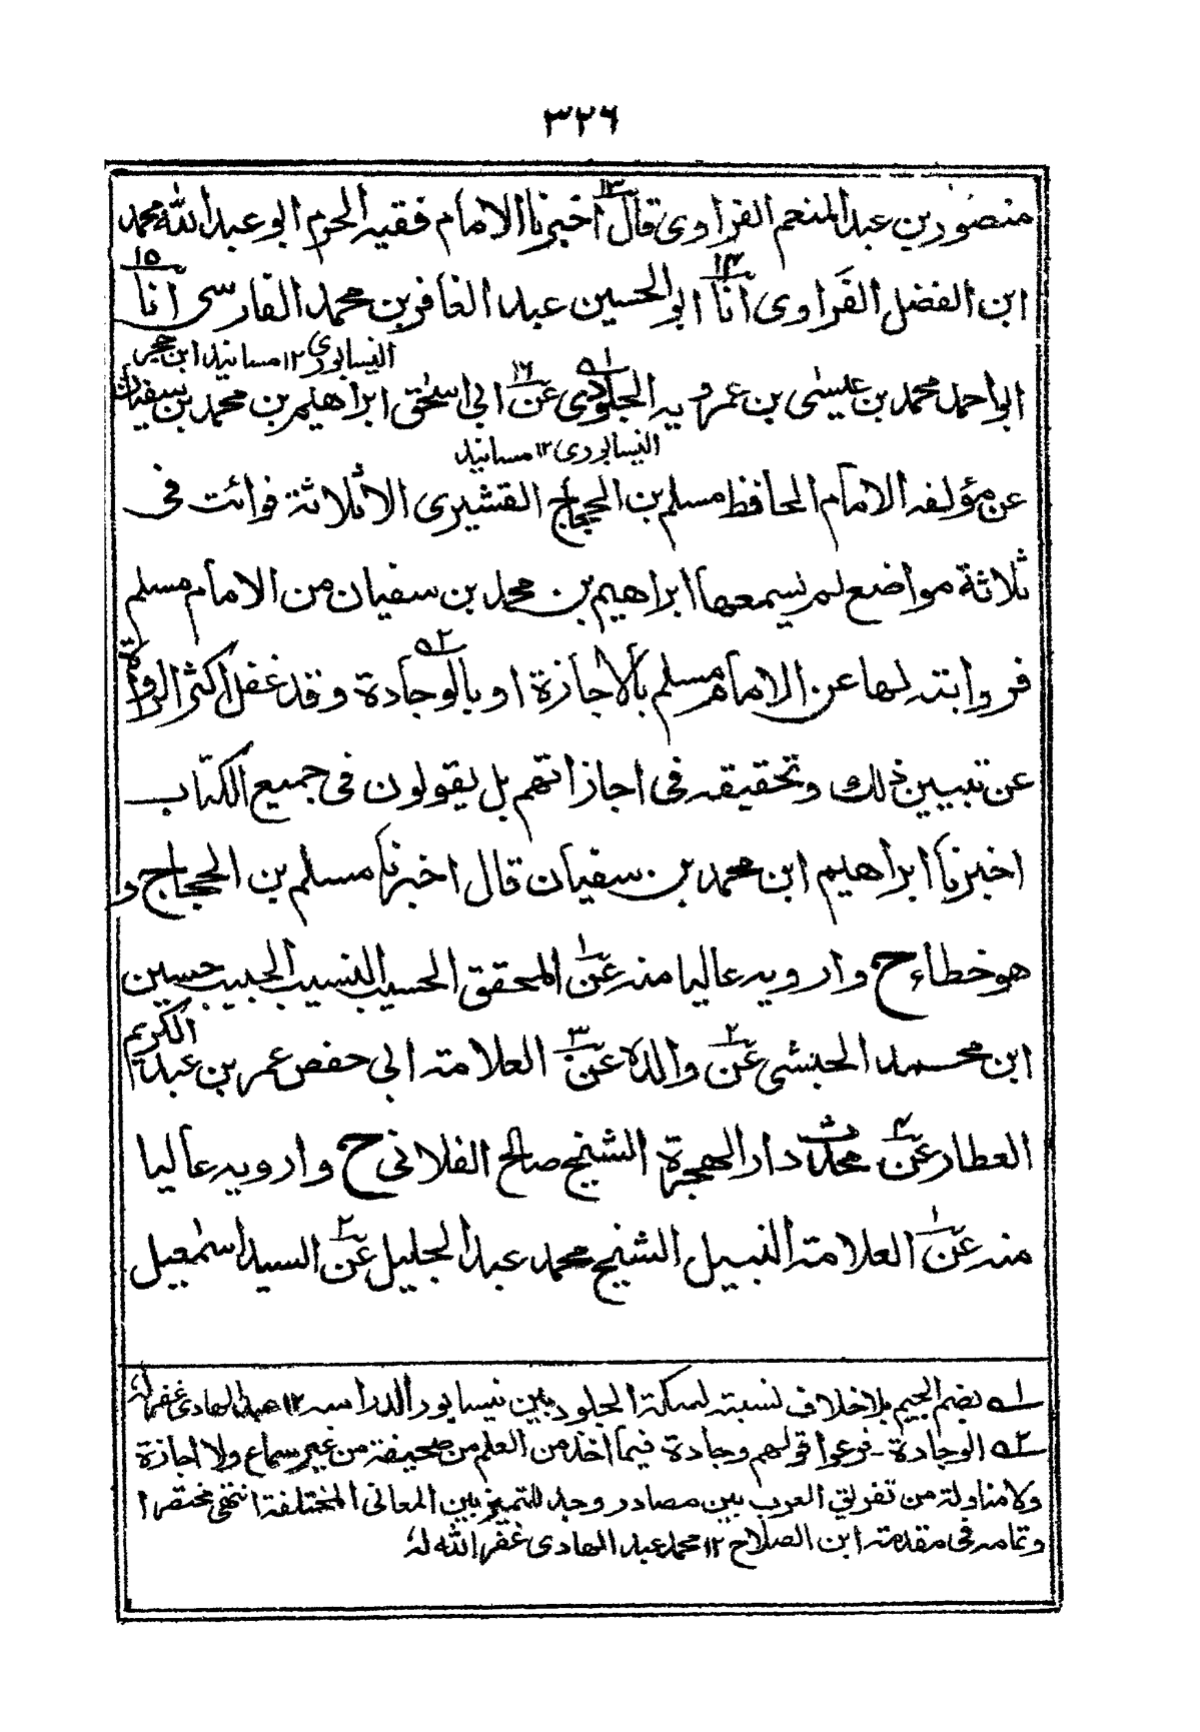 ٣٢٦
منصور بن عبد المنعم الفراوى قال ١٣ اخبرنا الامام فقيه الحرم ابو عبد الله محمد
ابن الفضل الفَراوى انا ١٤ ابو الحسين عبد الغافر بن محمد الفارسى انا ١٥
النيسابورى ١٢ مسانيد ابن حجر
ابو احمد محمد بن عيسٰى بن عمرويه الجلودى ١ه عن ١٦ ابى اسحٰق ابراهيم بن محمد بن سفيان
النيسابورى ١٢ مسانيد
عن مؤلفه الامام الحافظ مسلم بن الحجاج القشيرى الا ثلاثة فوائت فى
ثلاثة مواضع لم يسمعها ابراهيم بن محمد بن سفيان من الامام مسلم
فروايته لها عن الامام مسلم بالاجازة او بالوجادة ٢ه وقد غفل اكثر الرواة
عن تبيين ذلك وتحقيقه فى اجازاتهم بل يقولون فى جميع الكتاب
اخبرنا ابراهيم ابن محمد بن سفيان قال اخبرنا مسلم بن الحجاج و
هو خطاء ح وارويه عاليا منه عن ١ المحقق الحسيب النسيب الحبيب حسين
ابن محمد الحبشى عن ٢ والده عن ٣ العلامة ابى حفص عمر بن عبد الكريم
العطار عن ٤ محدث دار الهجرة الشيخ صالح الفلانى ح وارويه عاليا
منه عن ١ العلامة النبيل الشيخ محمد عبد الجليل عن ٢ السيد اسمٰعيل
١ه بضم الجيم بلا خلاف نسبته لسكة الجلود بين نيسابور الدراسه ١٢ عبد الهادى غفر له
٢ه الوجادة - فرعوا قولهم وجادة فيما اخذ من العلم من صحيفة من غير سماع ولا اجازة
ولا مناولة من تفريق العرب بين مصادر وجد للتمييز بين المعانى المختلفة انتهٰى مختصرا
وتمامه فى مقدمة ابن الصلاح ١٢ محمد عبد الهادى غفر الله له